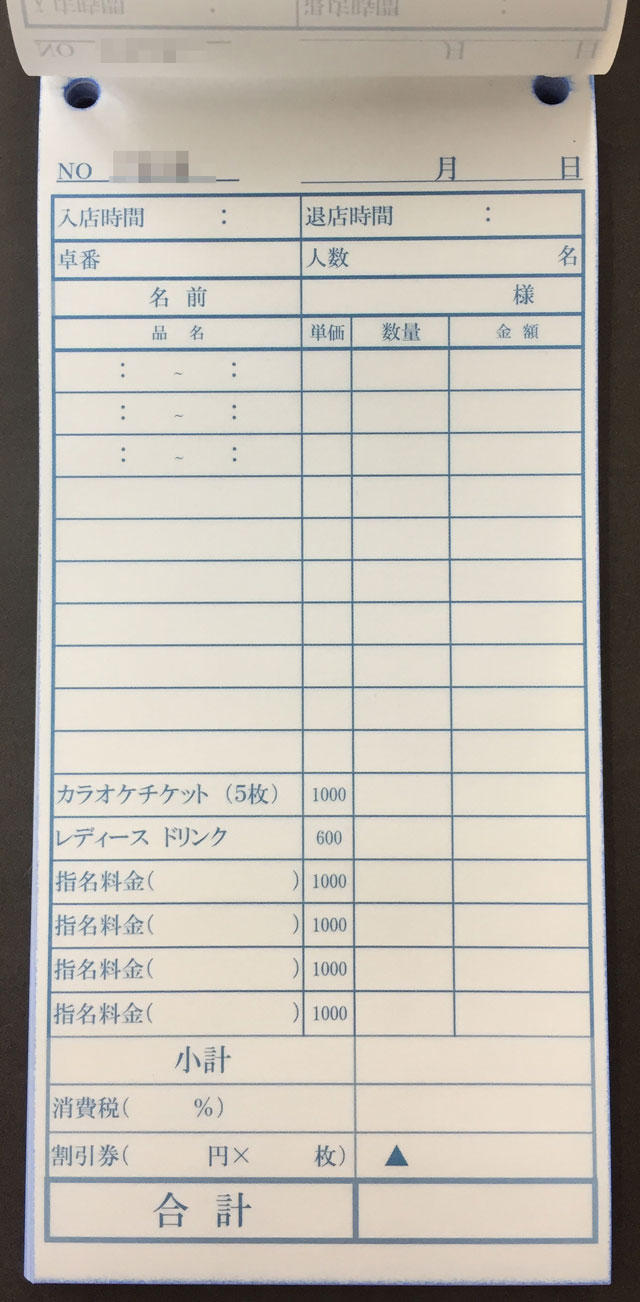 NO 月 日
NO 月 日
入店時間 : 退店時間 :
卓番 人数 名
名 前 様
品 名 単価 数量 金 額
: ~ :
: ~ :
: ~ :
カラオケチケット (5枚) 1000
レディース ドリンク 600
指名料金( ) 1000
指名料金( ) 1000
指名料金( ) 1000
指名料金( ) 1000
小計
消費税( %)
割引券( 円× 枚) ▲
合 計